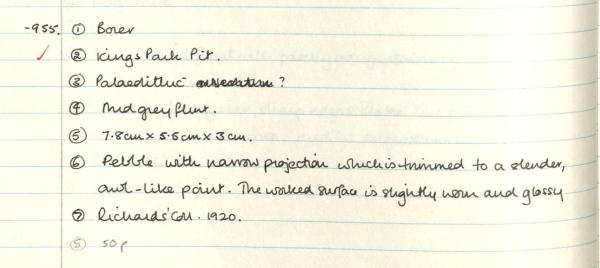 -955. ① Borer
✓ ② Kings Park Pit.
③ Palaeolithic ?
④ Mid grey flint.
⑤ 7.8cm x 5.5cm x 3cm.
⑥ Pebble with narrow projection which is trimmed to a slender,
awl-like point. The worked surface is slightly worn and glossy
⑦ Richards' Coll. 1920.
⑧ 50p